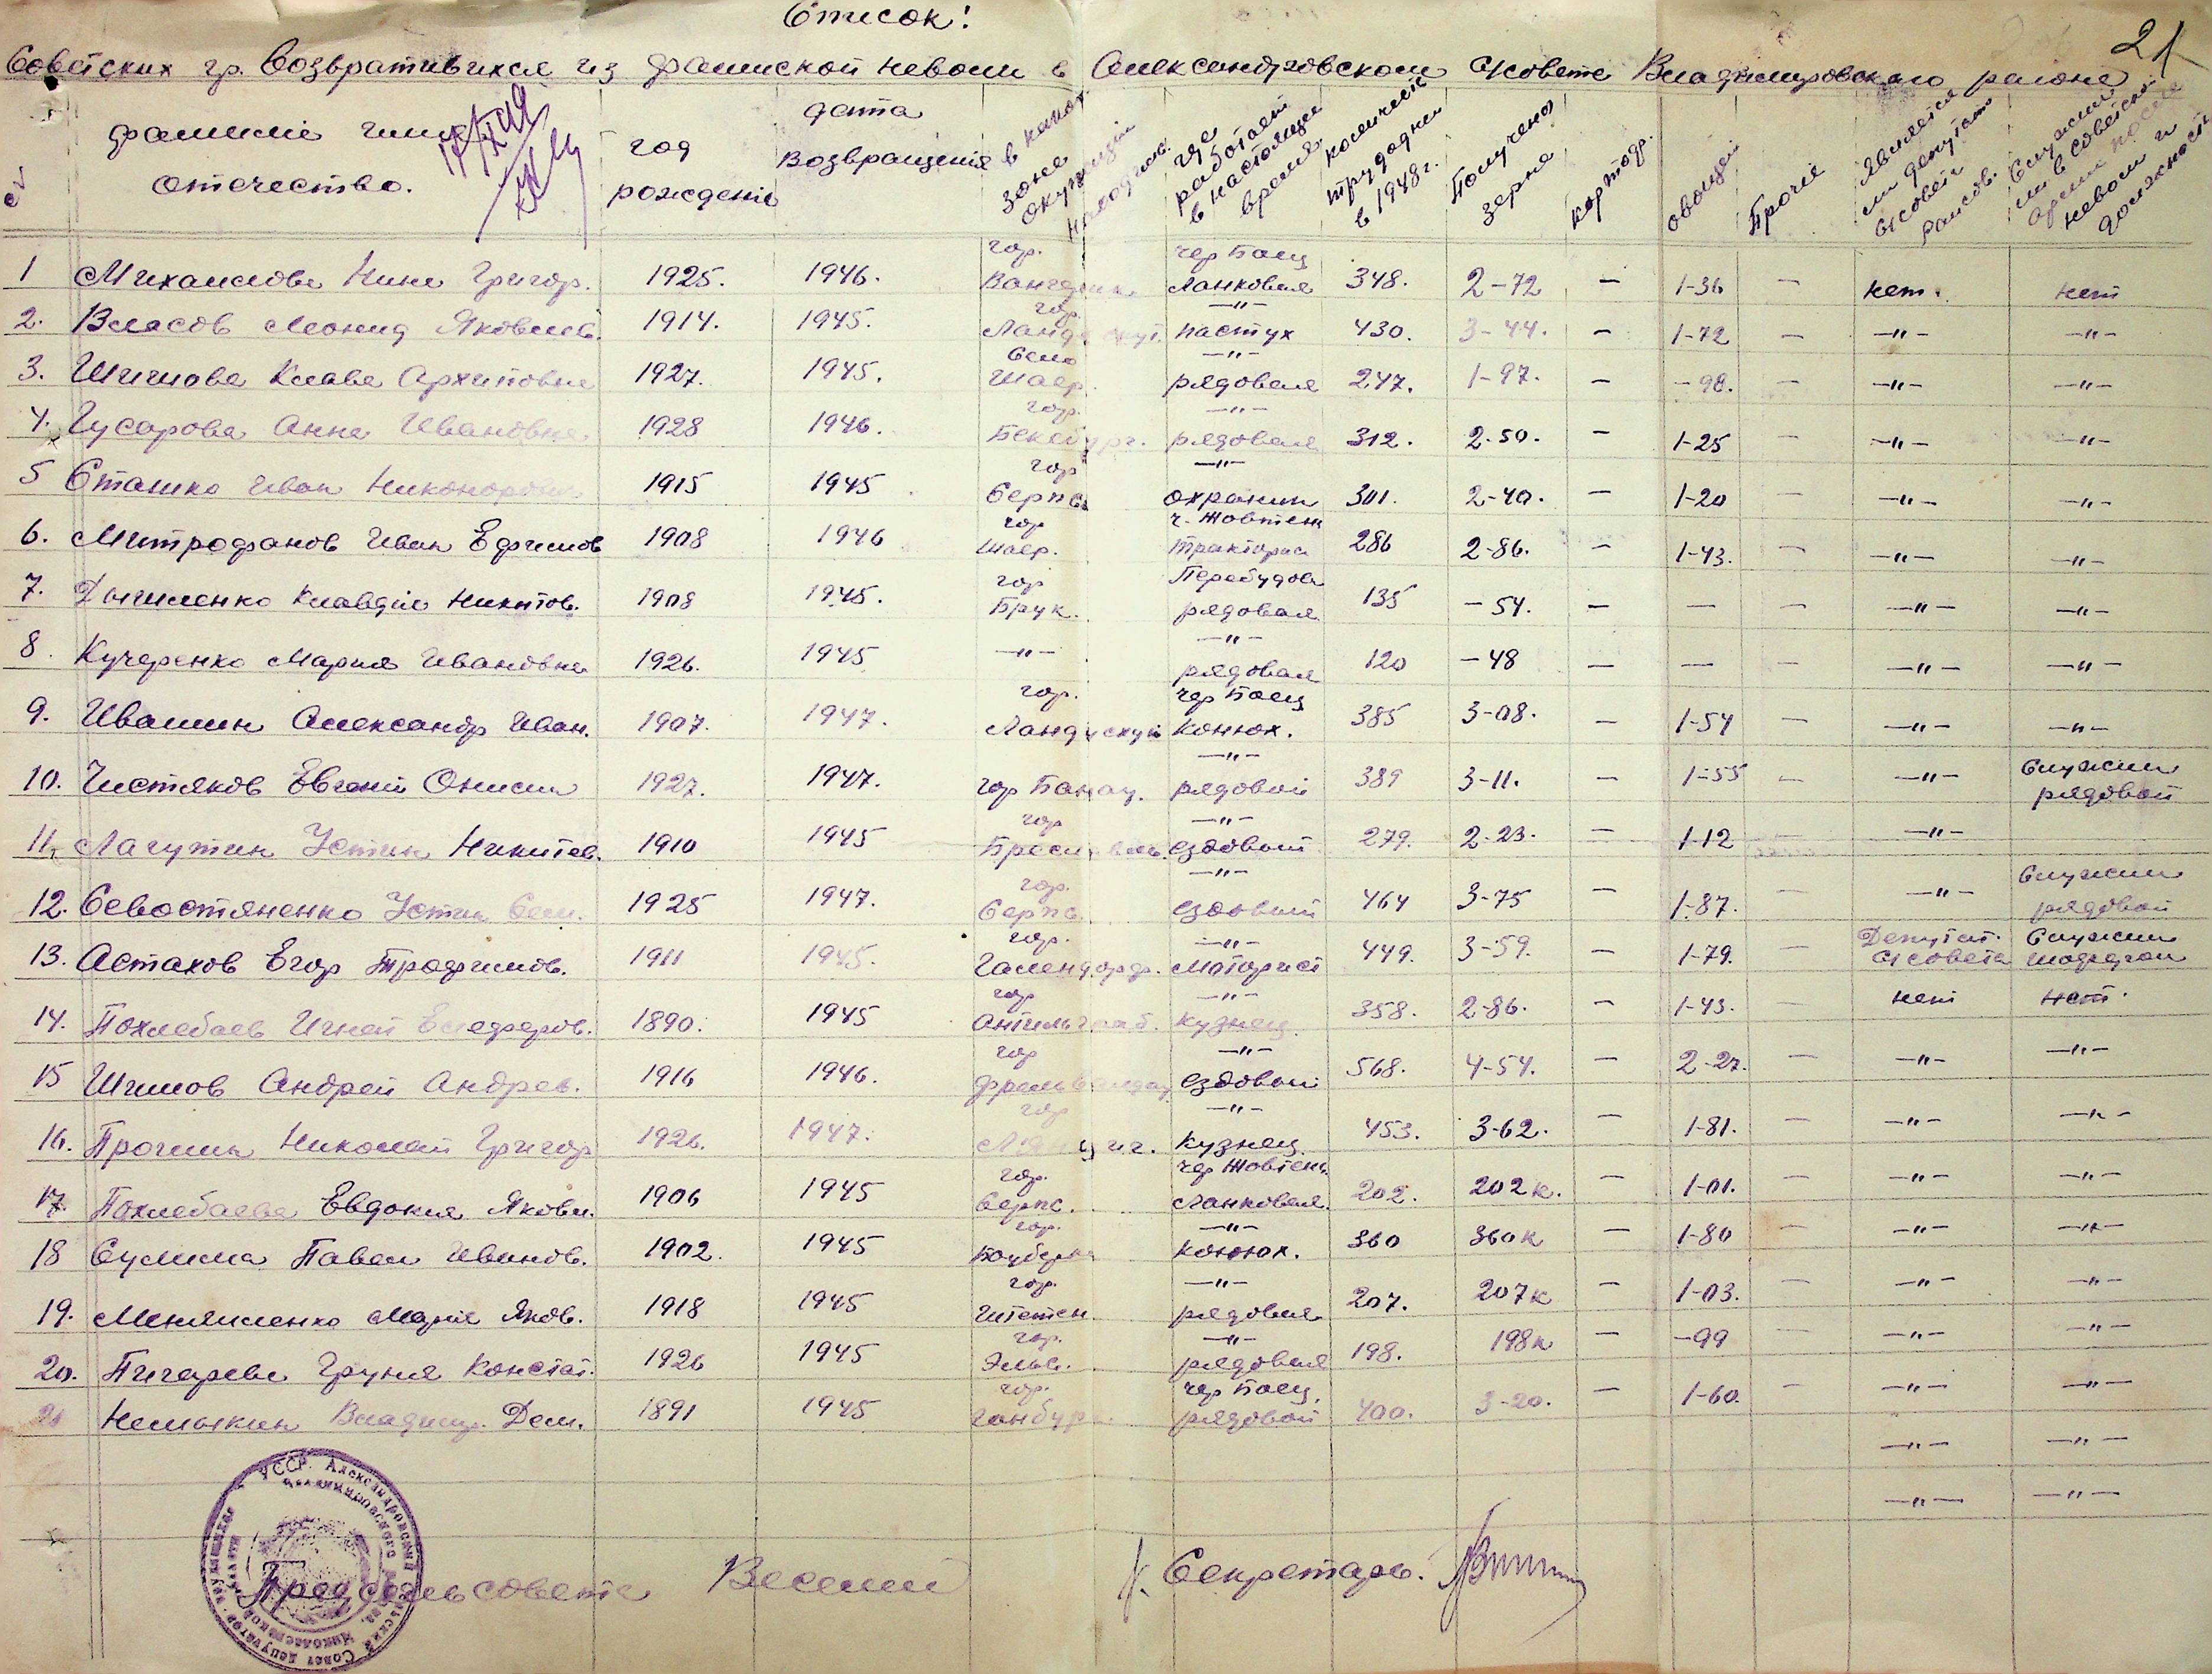 Список!
Советских гр. Возвратившихся из фашиской неволи в Александровском с/совете Владимировского района
21
фамилие имя отечество.
год рождение
дата возвращение
в какой зоне окупации находилс.
где работает в настоящее время
количеств трудодни в 1948 г.
Получено зерна
картоф.
овощей
Прочие
является ли депутат с/совета райсов.
Служил ли в советской армии после неволи и должность
1 Михайлова Нина Григор. 1925. 1946. гор. чер Боец ланковая 348. 2-72 — 1-36 — нет. нет
2. Власов Леонид Яковлев. 1914. 1945. гор. —"— пастух 430. 3-44. — 1-72 — —"— —"—
3. Шишова Клава Архиповна 1927. 1945. село Шаер. —"— рядовая 247. 1-97. — -98. — —"— —"—
4. Гусарова Анна Ивановна 1928 1946. гор. —"— рядовая 312. 2-50. — 1-25 — —"— —"—
5 Сташко Иван Никоноров 1915 1945 гор —"— охраник 301. 2-40. — 1-20 — —"— —"—
6. Митрофанов Иван Ефимов 1908 1946 гор Шаер. ч. Жовтень тракторис 286 2-86. — 1-43. — —"— —"—
7. Клавдия Никитов. 1908 1945. гор Брук. Перебудова рядовая 135 -54. — — — —"— —"—
8. Кучеренко Мария Ивановна 1926. 1945 —"— —"— рядовая 120 -48 — — — —"— —"—
9. Ивашин Александр Иван. 1907. 1947. гор. чер Боец Конюх. 385 3-08. — 1-54 — —"— —"—
10. Чистяков Евгений Онисим 1927. 1947. гор —"— рядовой 389 3-11. — 1-55 — —"— Служил рядовой
11. Лагутин Устин Никитев. 1910 1945 гор —"— ездовой 279. 2-23. — 1-12 — —"—
12. Севостяненко Устин Сем. 1925 1947. гор. —"— ездовый 464 3-75 — 1-87. — —"— Служил рядовой
13. Астахов Егор Трофимов. 1911 1945. гор. —"— моторист 449. 3-59. — 1-79. — Депутат с/совета Служил шофером
14. Похлебаев Игнат 1890. 1945 гор —"— кузнец 358. 2-86. — 1-43. — нет нет.
15 Шишов Андрей Андрев. 1916 1946. гор —"— ездовой 568. 4-54. — 2-27. — —"— —"—
16. Прошин Николай Григор 1926. 1947. гор —"— кузнец 453. 3-62. — 1-81. — —"— —"—
17. Похлебаева Евдокия Яковл. 1906 1945 гор. чер Жовтень ланковая. 202. 202 к. — 1-01. — —"— —"—
18 Сулима Павел Иванов. 1902. 1945 гор. —"— конюх. 360 360 к — 1-80 — —"— —"—
19. Мария Яков. 1918 1945 гор. Штетен. —"— рядовая 207. 207 к — 1-03. — —"— —"—
20. Пигарева Груня Констат. 1926 1945 гор. —"— рядовая 198. 198 к — -99 — —"— —"—
21 Немыкин Владимр. Дем. 1891 1945 гор. чер Боец. рядовой 400. 3-20. — 1-60. — —"— —"—
—"— —"—
—"— —"—
УССР. Александровский сельский Совет депутатов трудящихся
Владимировского района Николаевской области
Предсельсовета
Секретарь.